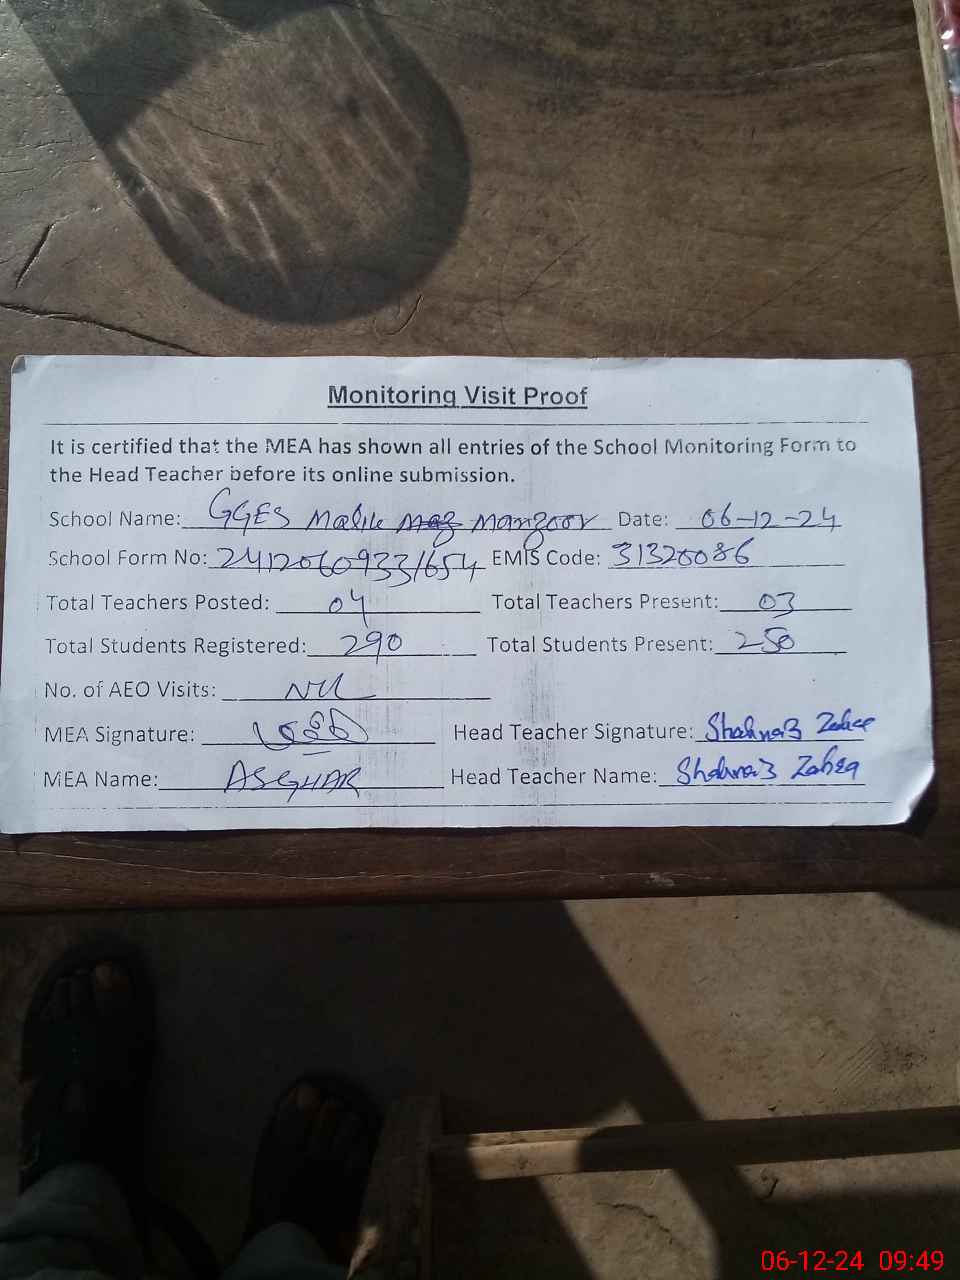 Monitoring Visit Proof
It is certified that the MEA has shown all entries of the School Monitoring Form to
the Head Teacher before its online submission.
School Name: GGES Malik Manzoor Date: 06-12-24
School Form No: 24120609331654 EMIS Code: 31320086
Total Teachers Posted: 04 Total Teachers Present: 03
Total Students Registered: 290 Total Students Present: 250
No. of AEO Visits: Nil
MEA Signature: Head Teacher Signature: Shahnaz
MEA Name: ASGHAR Head Teacher Name: Shahnaz Zahra
06-12-24 09:49